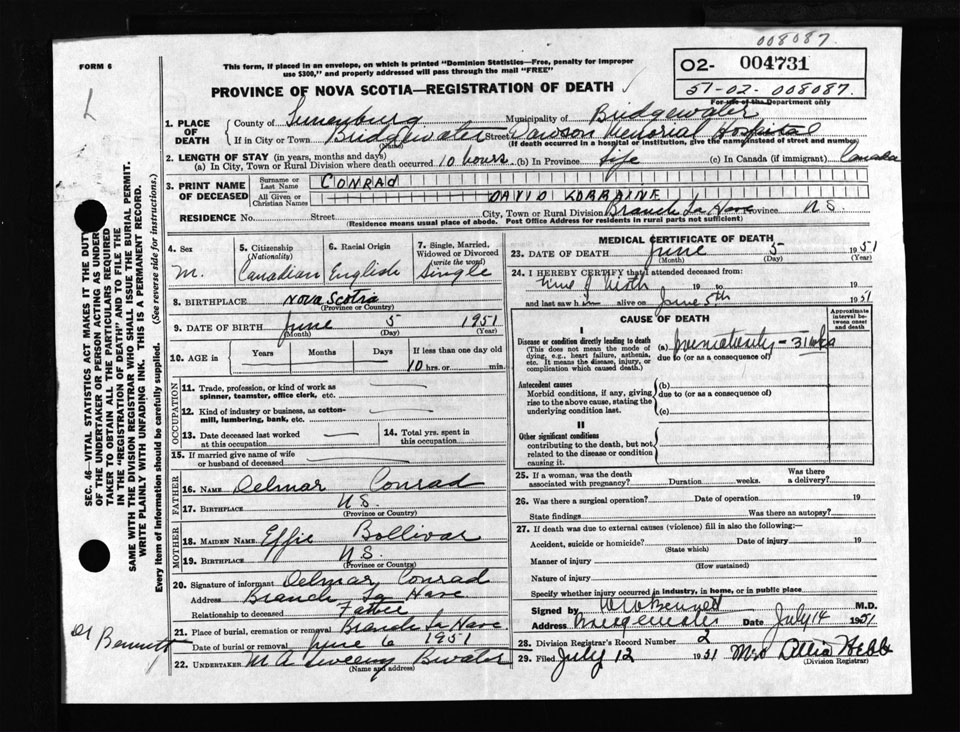 008087.
FORM 6
This form, if placed in an envelope, on which is printed "Dominion Statistics—Free, penalty for improper
use $300," and properly addressed will pass through the mail "FREE"
O2- 004731
51-02-008087.
For use of the Department only
PROVINCE OF NOVA SCOTIA—REGISTRATION OF DEATH
SEC. 46—VITAL STATISTICS ACT MAKES IT THE DUTY
OF THE UNDERTAKER OR PERSON ACTING AS UNDER-
TAKER TO OBTAIN ALL THE PARTICULARS REQUIRED
IN THE "REGISTRATION OF DEATH" AND TO FILE THE
SAME WITH THE DIVISION REGISTRAR WHO SHALL ISSUE THE BURIAL PERMIT.
WRITE PLAINLY WITH UNFADING INK. THIS IS A PERMANENT RECORD.
Every item of Information should be carefully supplied. (See reverse side for instructions.)
1. PLACE OF DEATH
County of Lunenburg Municipality of Bridgewater
If in City or Town Bridgewater Street Dawson Memorial Hospital
(Name) (If death occurred in a hospital or institution, give the name instead of street and number)
2. LENGTH OF STAY (in years, months and days)
(a) In City, Town or Rural Division where death occurred 10 hours (b) In Province life (c) In Canada (if immigrant) Canada
3. PRINT NAME OF DECEASED
Surname or Last Name CONRAD
All Given or Christian Names DAVID LORRAINE
RESIDENCE No. Street City, Town or Rural Division Branch La Have Province N.S.
(Residence means usual place of abode. Post Office Address for residents in rural parts not sufficient)
4. Sex
M.
5. Citizenship (Nationality)
Canadian
6. Racial Origin
English
7. Single, Married, Widowed or Divorced (write the word)
Single
8. BIRTHPLACE Nova Scotia
(Province or Country)
9. DATE OF BIRTH June 5 1951
(Month) (Day) (Year)
10. AGE in Years Months Days If less than one day old
10 hrs. or min.
OCCUPATION
11. Trade, profession, or kind of work as
spinner, teamster, office clerk, etc.
12. Kind of industry or business, as cotton-
mill, lumbering, bank, etc.
13. Date deceased last worked
at this occupation
14. Total yrs. spent in
this occupation
15. If married give name of wife
or husband of deceased
FATHER
16. NAME Delmar Conrad
17. BIRTHPLACE N.S.
(Province or Country)
MOTHER
18. MAIDEN NAME Effie Bollivar
19. BIRTHPLACE N.S.
(Province or Country)
20. Signature of informant Delmar Conrad
Address Branch La Have
Relationship to deceased Father
21. Place of burial, cremation or removal Branch La Have
Date of burial or removal June 6 1951
22. UNDERTAKER M A Sweeny B'water
(Name and address)
Dr Bennett
MEDICAL CERTIFICATE OF DEATH
23. DATE OF DEATH June 5 1951
(Month) (Day) (Year)
24. I HEREBY CERTIFY that I attended deceased from:
Time of birth 19 to 19
and last saw h im alive on June 5th 1951
CAUSE OF DEATH
Approximate interval between onset and death
I
Disease or condition directly leading to death
(This does not mean the mode of
dying, e.g., heart failure, asthenia,
etc. It means the disease, injury, or
complication which caused death.)
(a) Prematurity - 31 wks
due to (or as a consequence of)
Antecedent causes
Morbid conditions, if any, giving
rise to the above cause, stating the
underlying condition last.
(b)
due to (or as a consequence of)
(c)
II
Other significant conditions
contributing to the death, but not
related to the disease or condition
causing it.
25. If a woman, was the death
associated with pregnancy? Duration weeks. Was there a delivery?
26. Was there a surgical operation? Date of operation 19
State findings Was there an autopsy?
27. If death was due to external causes (violence) fill in also the following:—
Accident, suicide or homicide? Date of injury 19
(State which)
Manner of injury
(How sustained)
Nature of injury
Specify whether injury occurred in industry, in home, or in public place
Signed by Bennett M.D.
Address Bridgewater Date July 14 1951
28. Division Registrar's Record Number 2
29. Filed July 12 1951 Mrs Ollia Hebb
(Division Registrar)